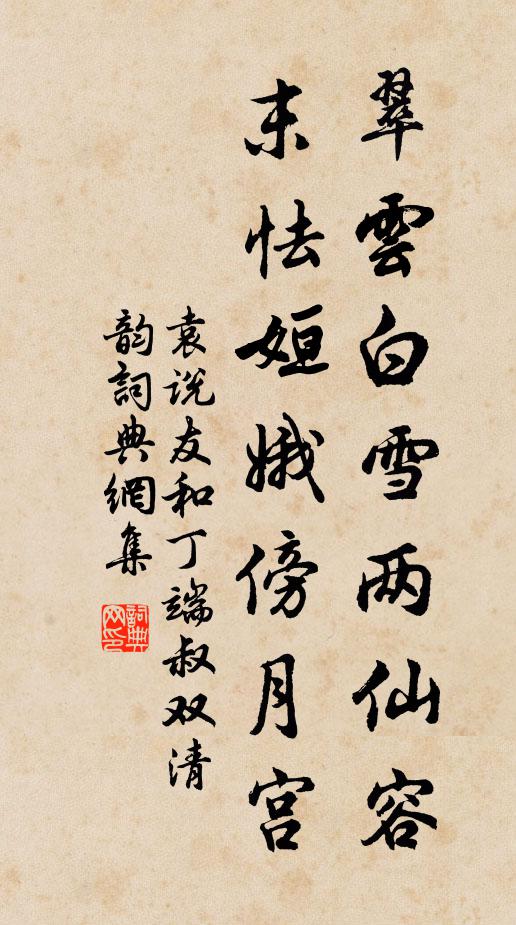 翠雲白雪两仙容
未怯姮娥傍月宫
袁说友和丁端叔双清
韵詞典網集
詞典网印